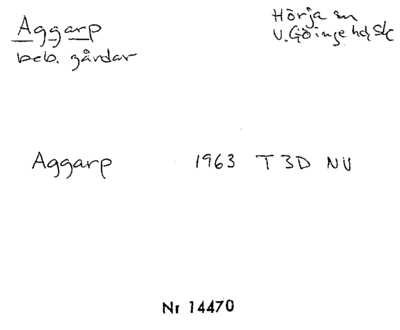 Aggarp
beb. gårdar
Hörja sn
V. Göinge hd, Sk
Aggarp 1963 T 3D NV
Nr 14470